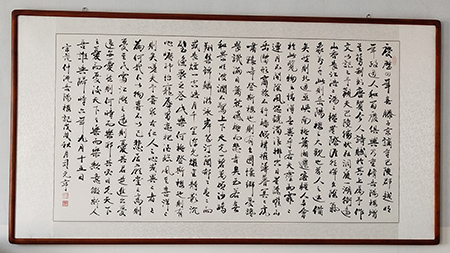 慶曆四年春滕子京謫守巴陵郡越明
年政通人和百廢俱興乃重修岳陽樓增
其舊制刻唐賢今人詩賦於其上屬予作
文以記之予觀夫巴陵勝狀在洞庭一湖銜遠
山吞長江浩浩湯湯橫無際涯朝暉夕陰氣
象萬千此則岳陽樓之大觀也前人之述備
矣然則北通巫峽南極瀟湘遷客騷人多會
於此覽物之情得無異乎若夫霪雨霏霏
連月不開陰風怒號濁浪排空日星隱曜山
岳潛形商旅不行檣傾楫摧薄暮冥冥虎
嘯猿啼登斯樓也則有去國懷鄉憂讒
畏譏滿目蕭然感極而悲者矣至若春
和景明波瀾不驚上下天光一碧萬頃沙鷗
翔集錦鱗游泳岸芷汀蘭郁郁青青而
或長煙一空皓月千里浮光躍金靜影沉
璧漁歌互答此樂何極登斯樓也則有
心曠神怡寵辱偕忘把酒臨風其喜洋洋
者矣嗟夫予嘗求古仁人之心或異二者之
為何哉不以物喜不以己悲居廟堂之高則
憂其民處江湖之遠則憂其君是進亦憂
退亦憂然則何時而樂耶其必曰先天下
之憂而憂後天下之樂而樂歟噫微斯人
吾誰與歸時六年九月十五日
宋范仲淹岳陽樓記戊戌秋月